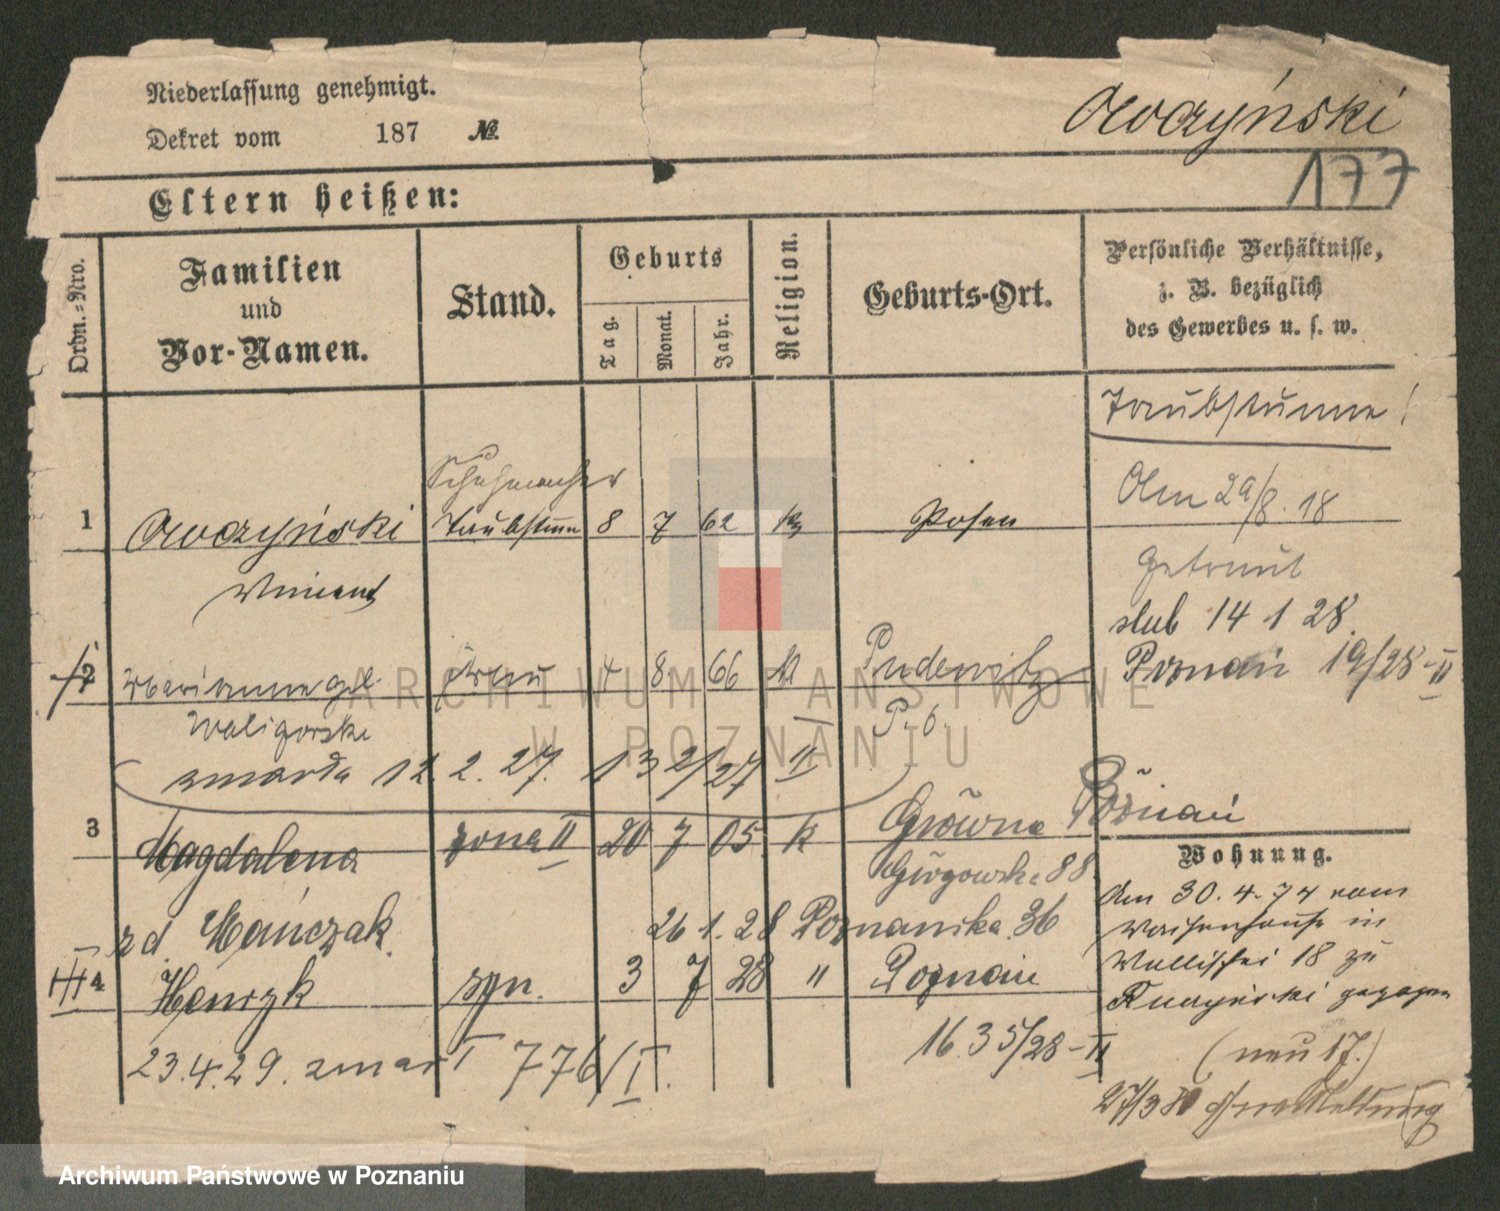 Niederlassung genehmigt.
Dekret vom 187 №
Owczyński
177
Eltern heißen:
Ordn.-Nro.
Familien
und
Vor-Namen.
Stand.
Geburts
Tag.
Monat.
Jahr.
Religion.
Geburts-Ort.
Persönliche Verhältnisse,
z. B. bezüglich
des Gewerbes u. s. w.
Taubstumm!
Schuhmacher
1 Owczyński Taubstum 8 7 62 Posen
29/8. 18
Vincent
Getraut
slub 14 1 28
Poznań 19/28-II
2 Marianna geb. Frau 4 8 66 k Pudewitz
Waligorska
P. O.
zmarła 12 2. 27. 13 2/27 II
3 Magdalena żona II 20 7 05. k Główna Poznań
Głogowska 88
Wohnung.
zd. Mańczak 26 1. 28 Poznańska 36
Am 30. 4. 74 vom
Waisenhause in
Wallischei 18 zu
4 Henryk syn. 3 7 28 " Poznań
gezogen
16.35/28-II
(neu 17.)
23.4.29. zmar 776/I.
27/3 80
ARCHIWUM PAŃSTWOWE
W POZNANIU
Archiwum Państwowe w Poznaniu